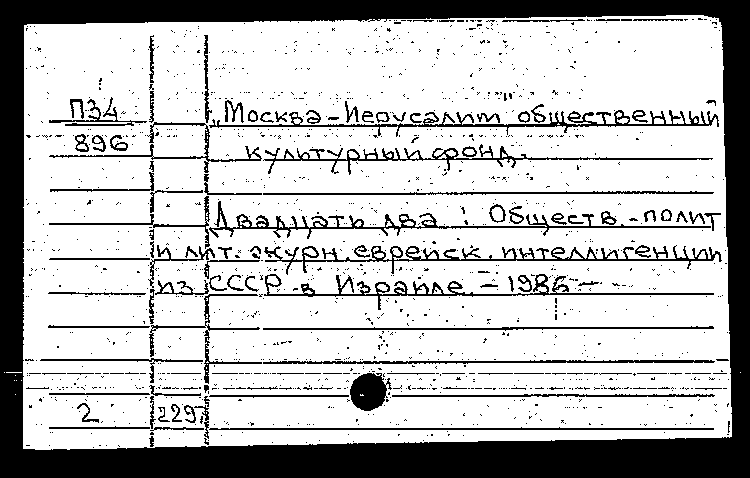 П34
896
„Москва-Иерусалим" общественный
культурный фонд.
Двадцать два : Обществ.-полит
и лит. журн. еврейск. интеллигенции
из СССР в Израиле. - 1986 -
2 229